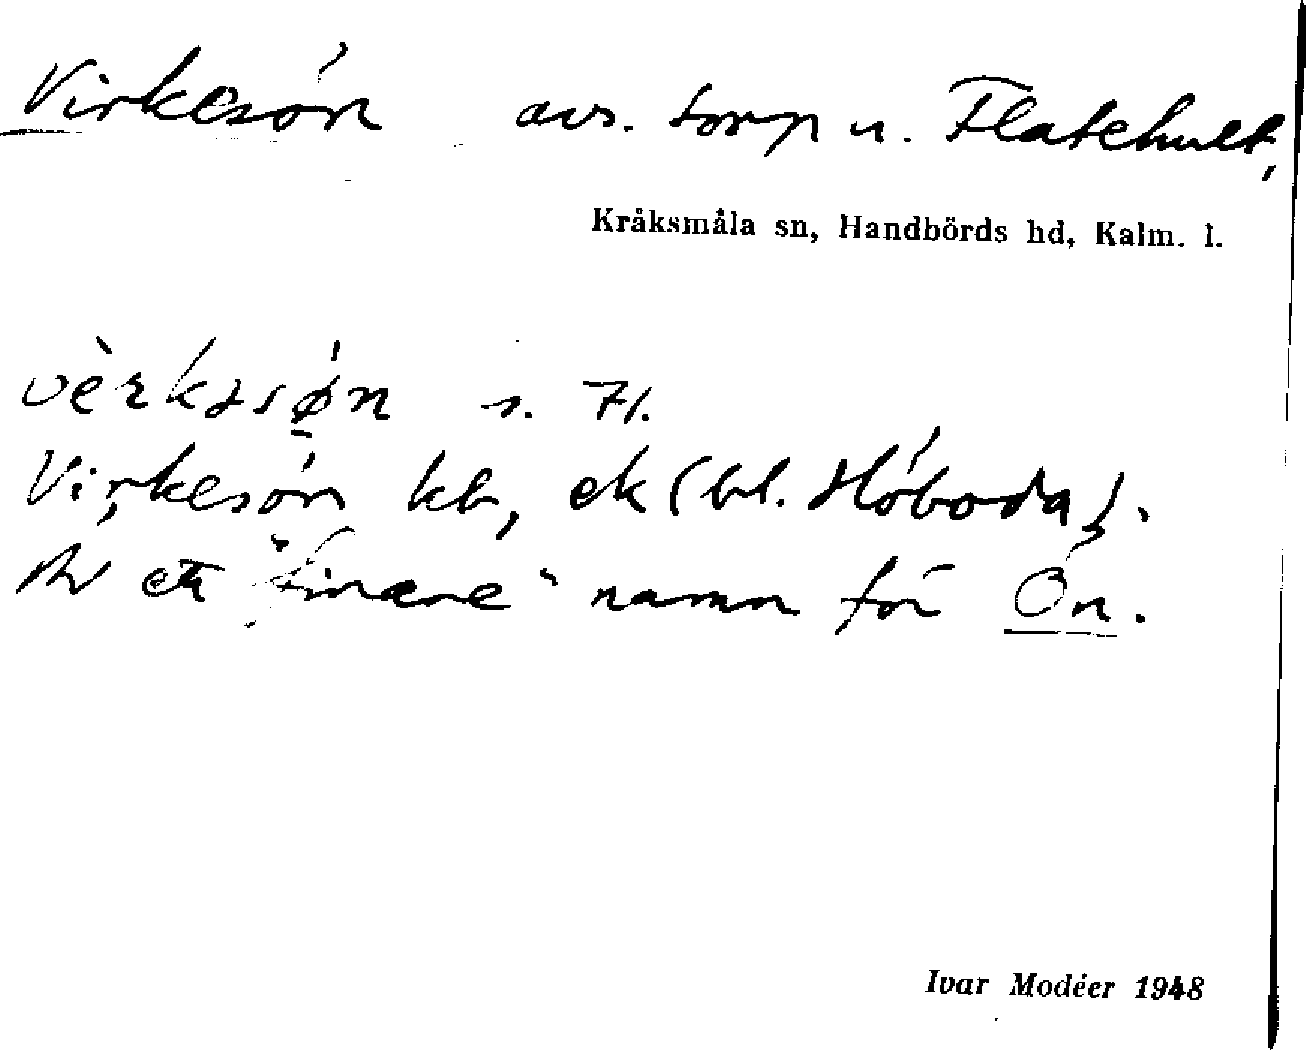 Virkesön avs. torp u. Flatehult,
Kråksmåla sn, Handbörds hd, Kalm. l.
vèrkəsøn s. Fl.
Virkesön kb, ek (bl. Höboda).
Är ett "finare" namn för Ön.
Ivar Modéer 1948